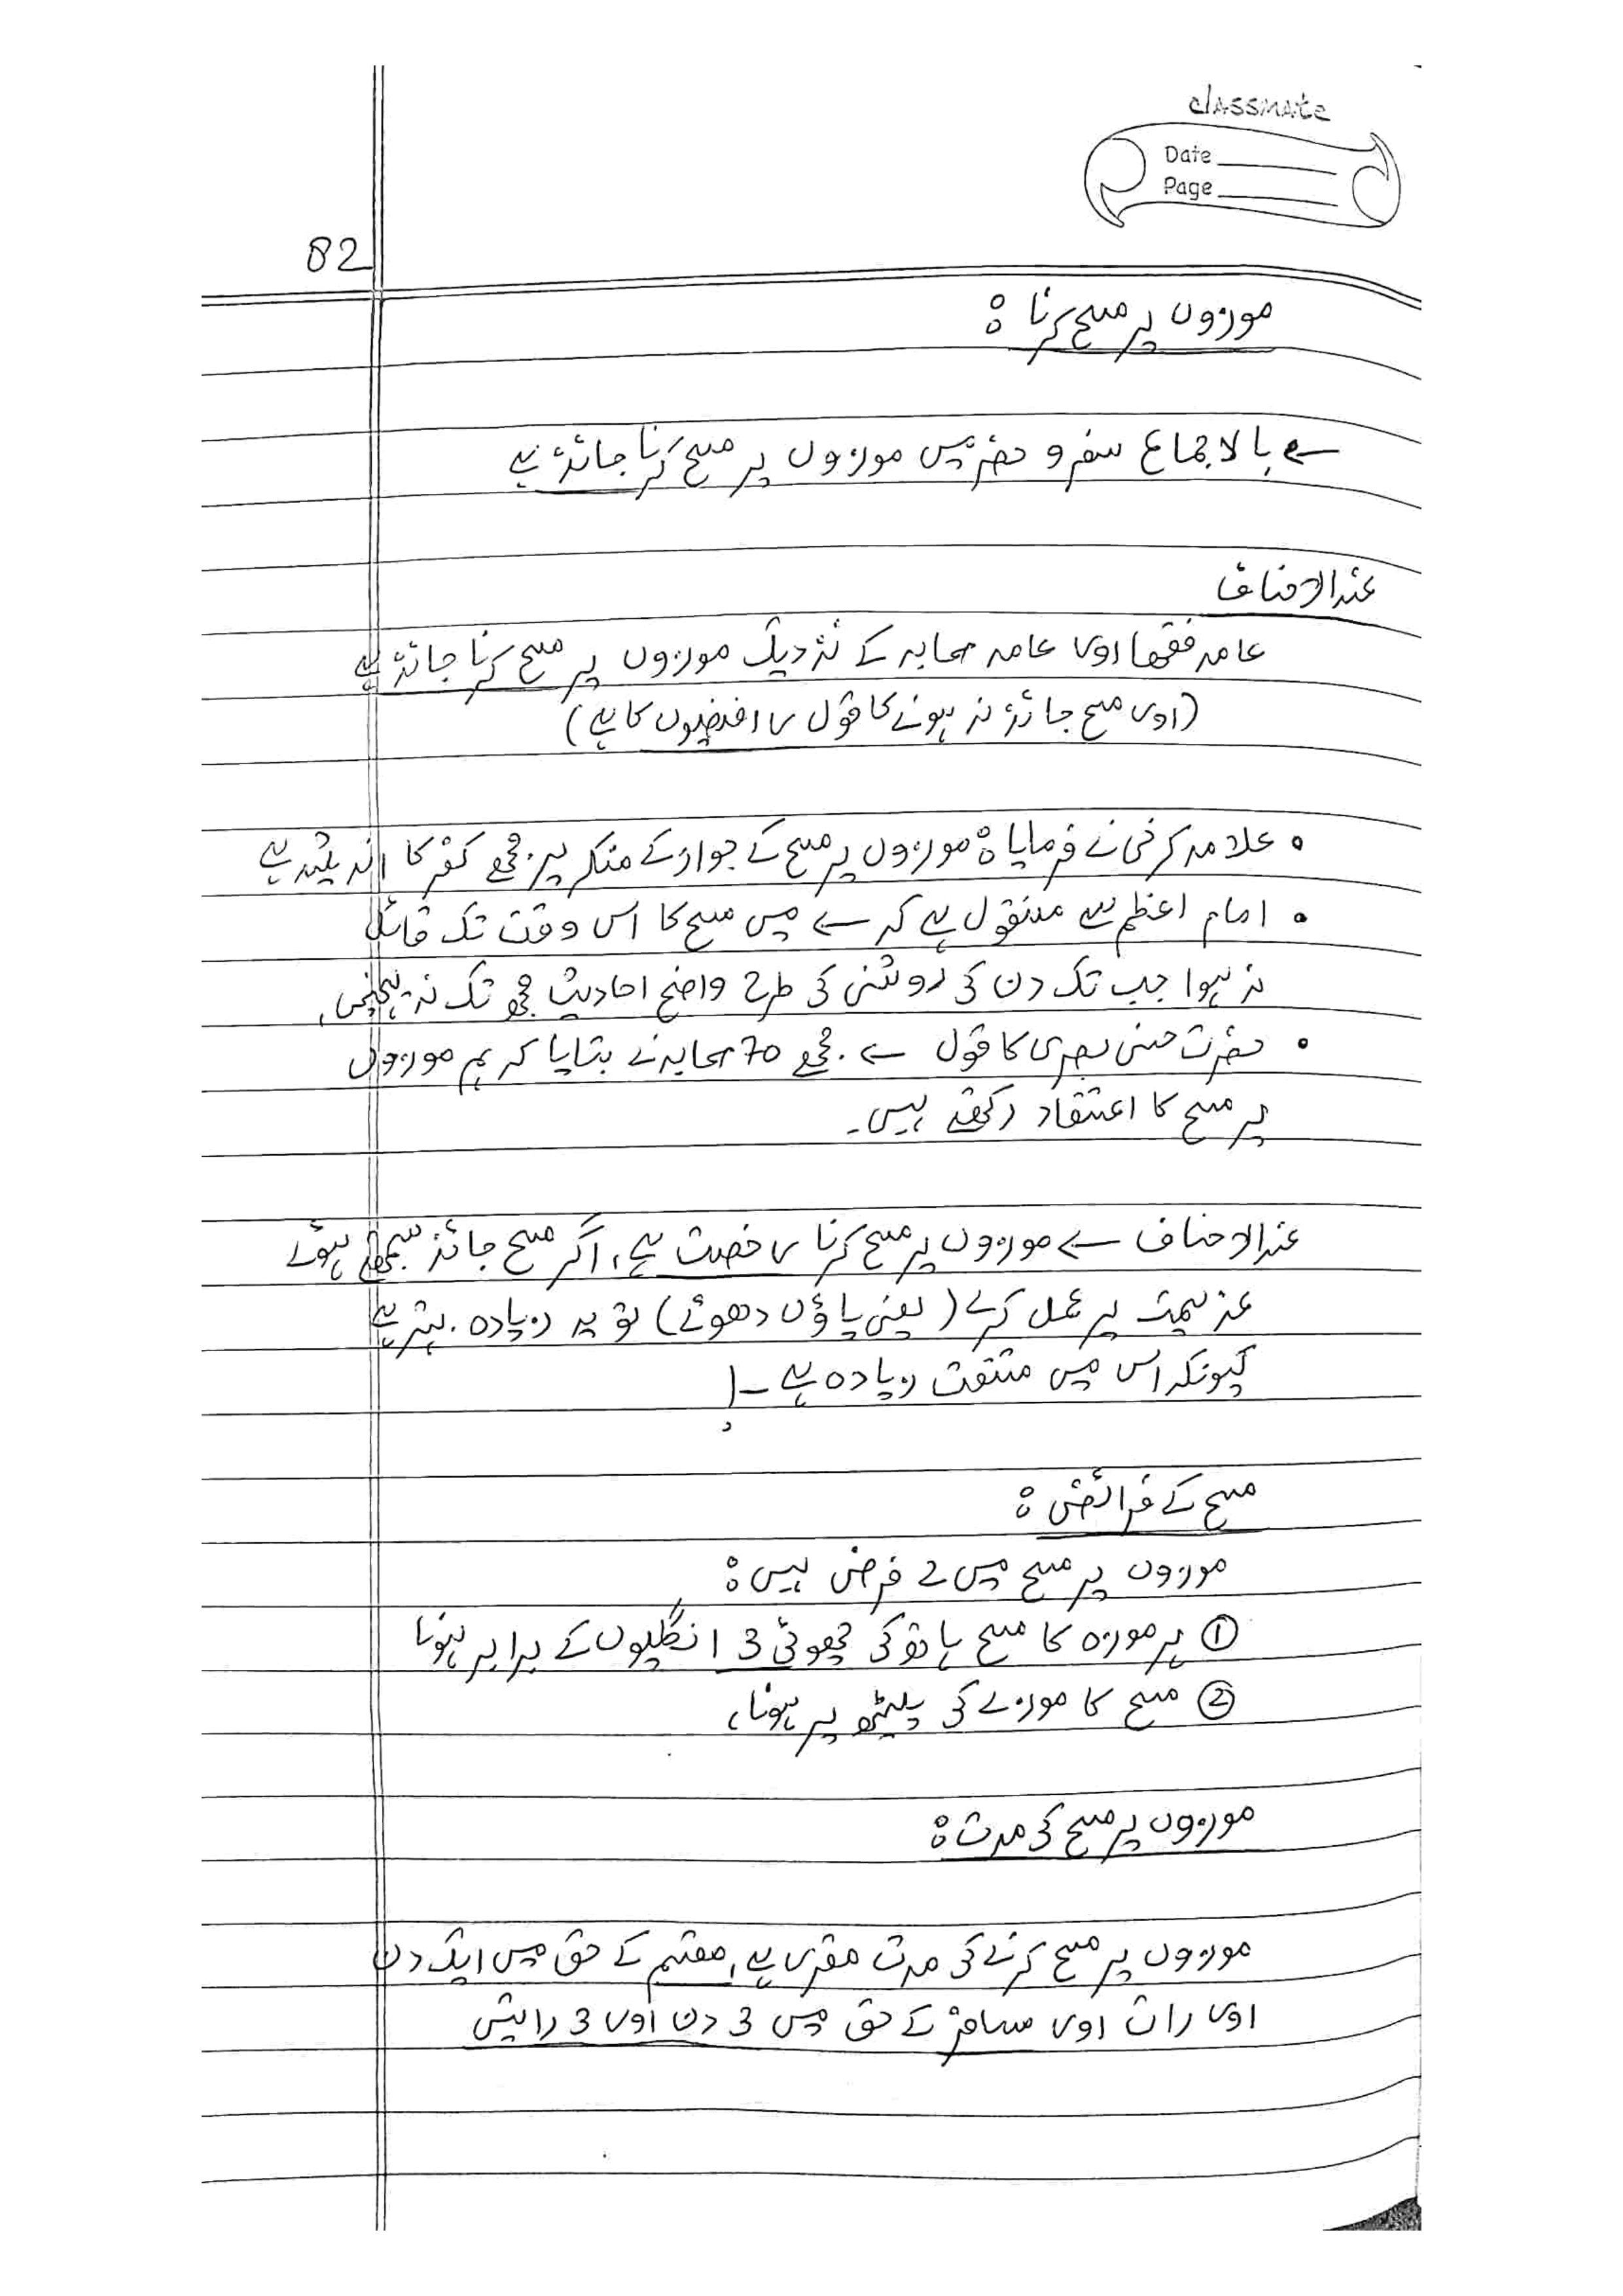 classmate
Date
Page
82
موزوں پر مسح کرنا :
← بالاجماع سفر و حضر میں موزوں پر مسح کرنا جائز ہے
عندالاحناف
عامہ فقہا اور عامہ صحابہ کے نزدیک موزوں پر مسح کرنا جائز ہے
(اور مسح جائز نہ ہونے کا قول رافضیوں کا ہے)
• علامہ کرخی نے فرمایا : موزوں پر مسح کے جواز کے منکر پر مجھے کفر کا اندیشہ ہے
• امام اعظم سے منقول ہے کہ ← میں مسح کا اس وقت تک قائل
نہ ہوا جب تک دن کی روشنی کی طرح واضح احادیث مجھ تک نہ پہنچیں،
• حضرت حسن بصری کا قول ← مجھے 70 صحابہ نے بتایا کہ ہم موزوں
پر مسح کا اعتقاد رکھتے ہیں۔
عندالاحناف ← موزوں پر مسح کرنا رخصت ہے، اگر مسح جائز سمجھتے ہوئے
عزیمت پر عمل کرے (یعنی پاؤں دھوئے) تو یہ زیادہ بہتر ہے
کیونکہ اس میں مشقت زیادہ ہے۔!
مسح کے فرائض :
موزوں پر مسح میں 2 فرض ہیں :
① ہر موزہ کا مسح ہاتھ کی چھوٹی 3 انگلیوں کے برابر ہونا
② مسح کا موزے کی پیٹھ پر ہونا،
موزوں پر مسح کی مدت :
موزوں پر مسح کرنے کی مدت مقرر ہے، مقیم کے حق میں ایک دن
اور رات اور مسافر کے حق میں 3 دن اور 3 راتیں